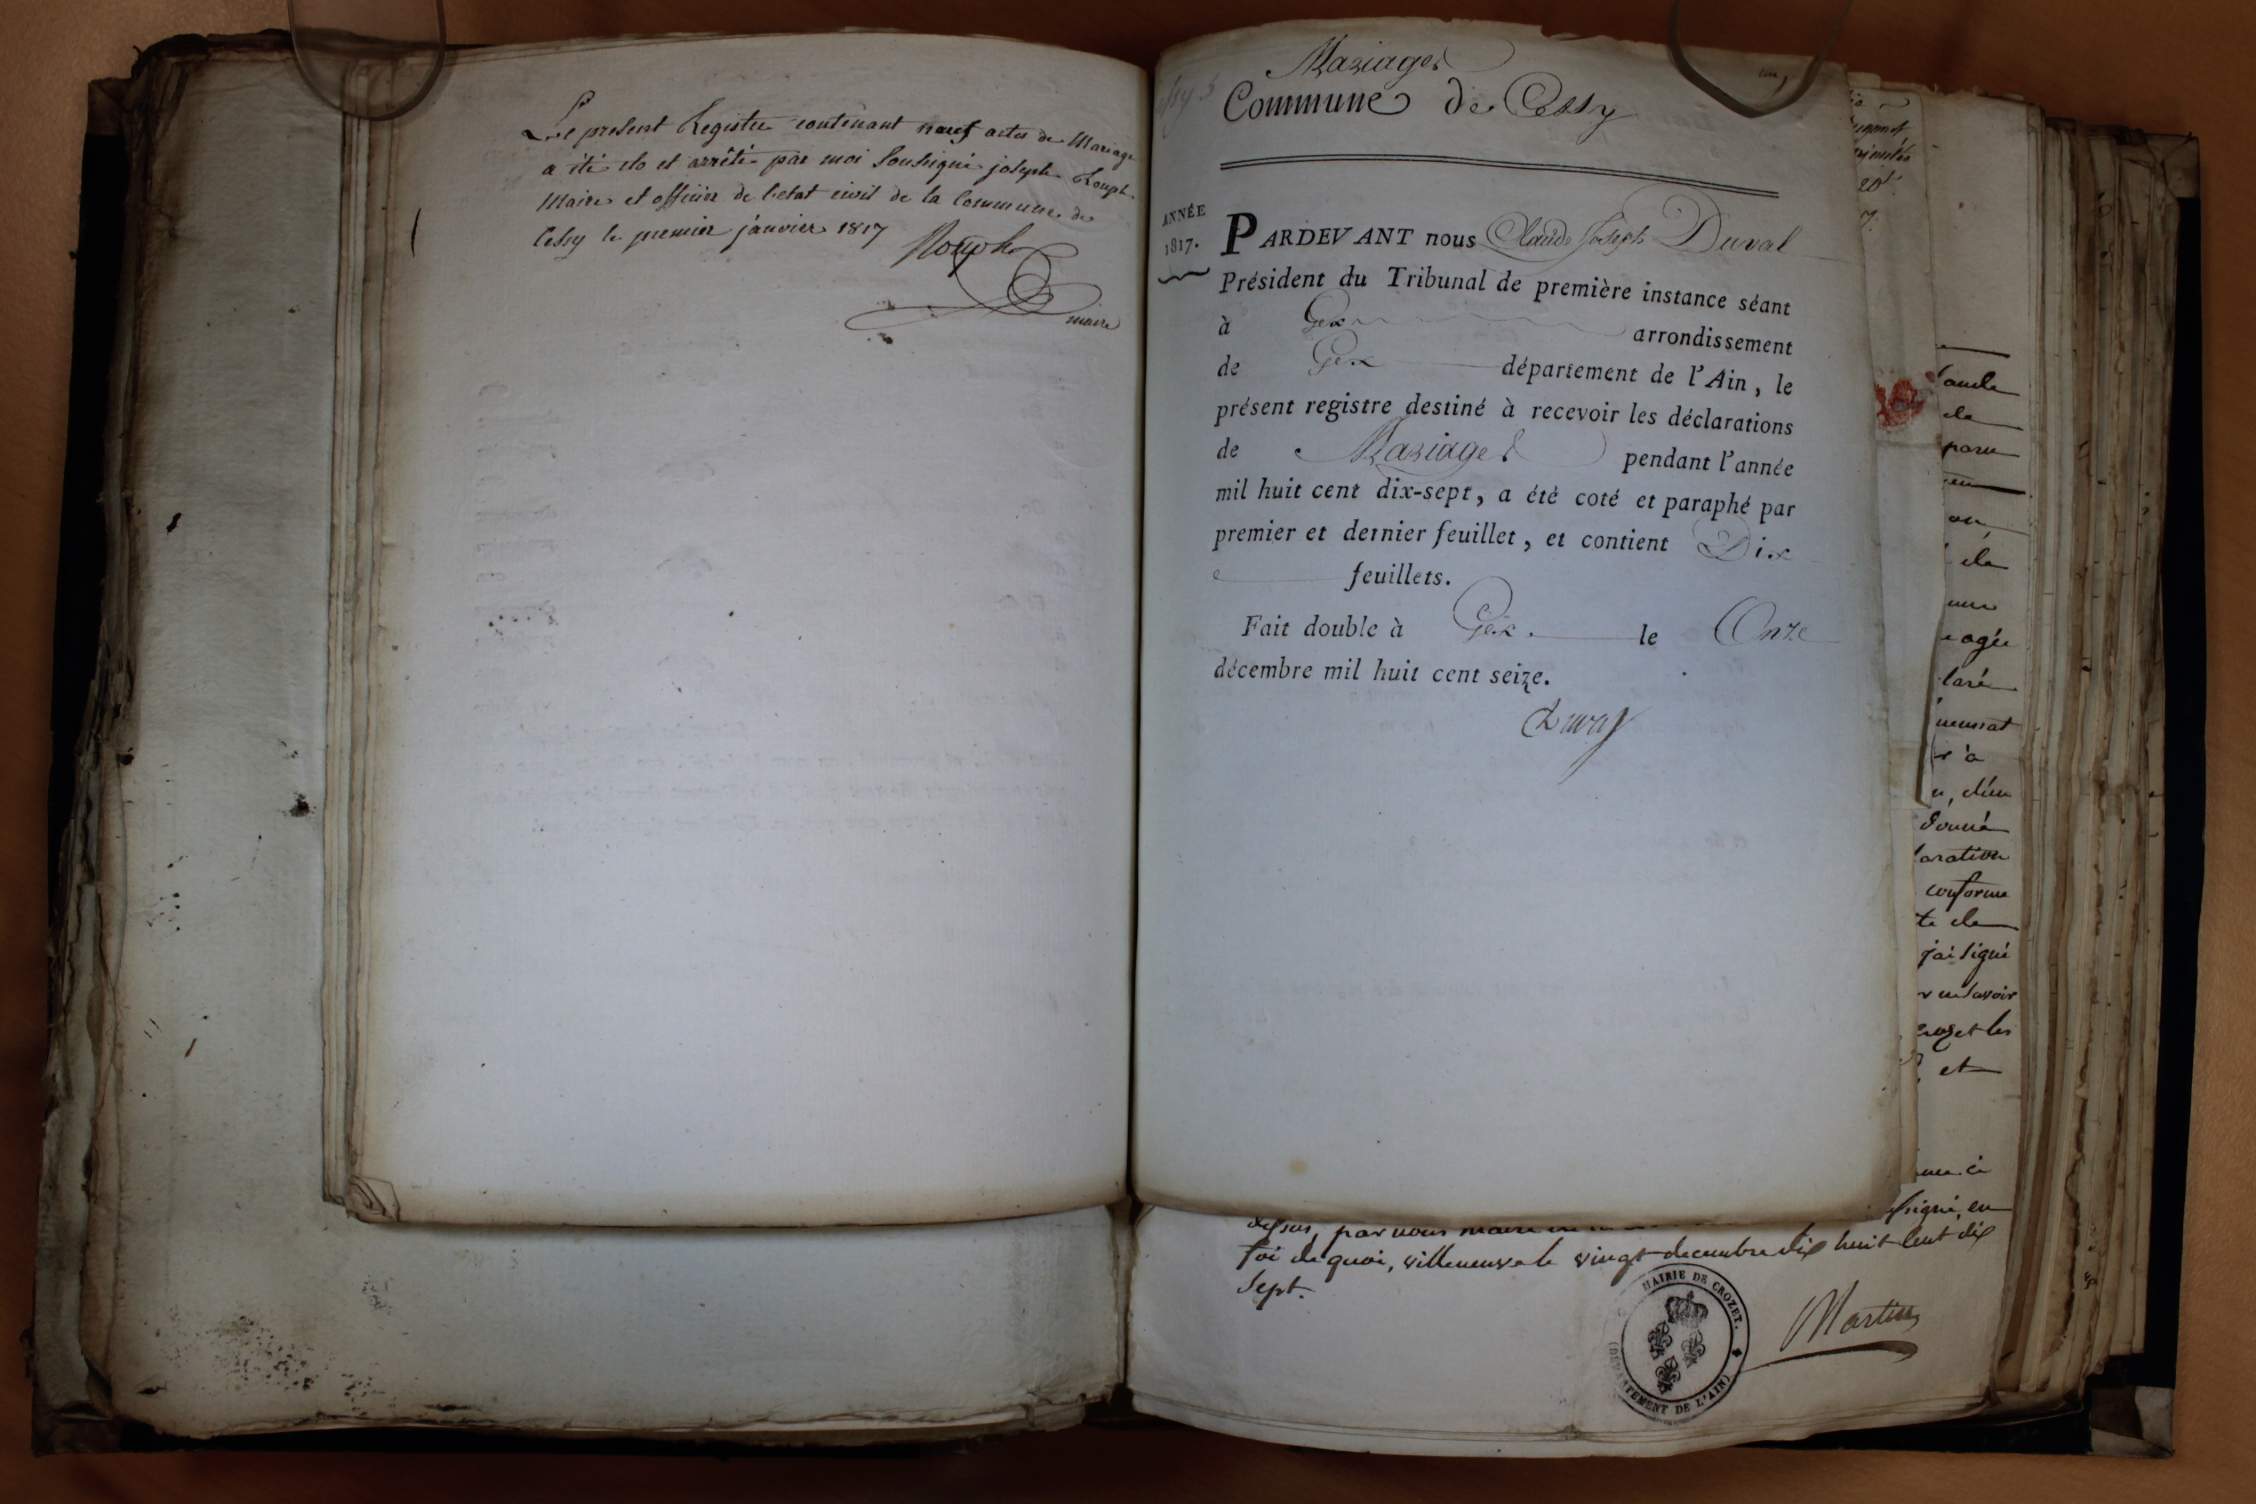 Le present Registre contenant neuf actes de Mariage
a été clo et arrêté par moi soussigné joseph Rouph
Maire et officier de l'etat civil de la Commune de
Cessy le premier janvier 1817
Rouph
maire
Mariages
Commune de Cessy
ANNÉE
1817.
PARDEVANT nous Claude Joseph Duval
Président du Tribunal de première instance séant
à Gex arrondissement
de Gex département de l'Ain, le
présent registre destiné à recevoir les déclarations
de Mariages pendant l'année
mil huit cent dix-sept, a été coté et paraphé par
premier et dernier feuillet, et contient Dix
feuillets.
Fait double à Gex. le Onze
décembre mil huit cent seize.
Duval
20
7.
de
paru
de
agée
à
donné
conforme
te de
j'ai signé
et les
et
signé, en
dessus, par nous maire
foi de quoi, villeneuve le vingt decembre dix huit cent dix
sept.
MAIRIE DE CROZET.
(DÉPARTEMENT DE L'AIN)
Martin